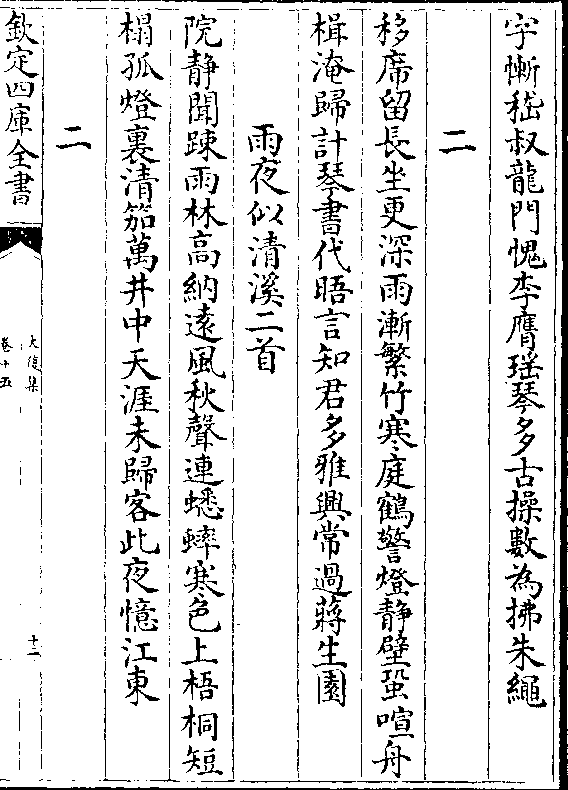 宇慚嵇叔龍門愧李膺瑶琴多古操數為拂朱繩
二
移席留長坐更深雨漸繁竹寒庭鶴警燈静壁蛩喧舟
楫淹歸計琴書代晤言知君多雅興常過蔣生園
雨夜似清溪二首
院静聞踈雨林高納遠風秋聲連蟋蟀寒色上梧桐短
榻孤燈裏清笳萬井中天涯未歸客此夜憶江東
二
欽定四庫全書
大復集
卷十五
十二